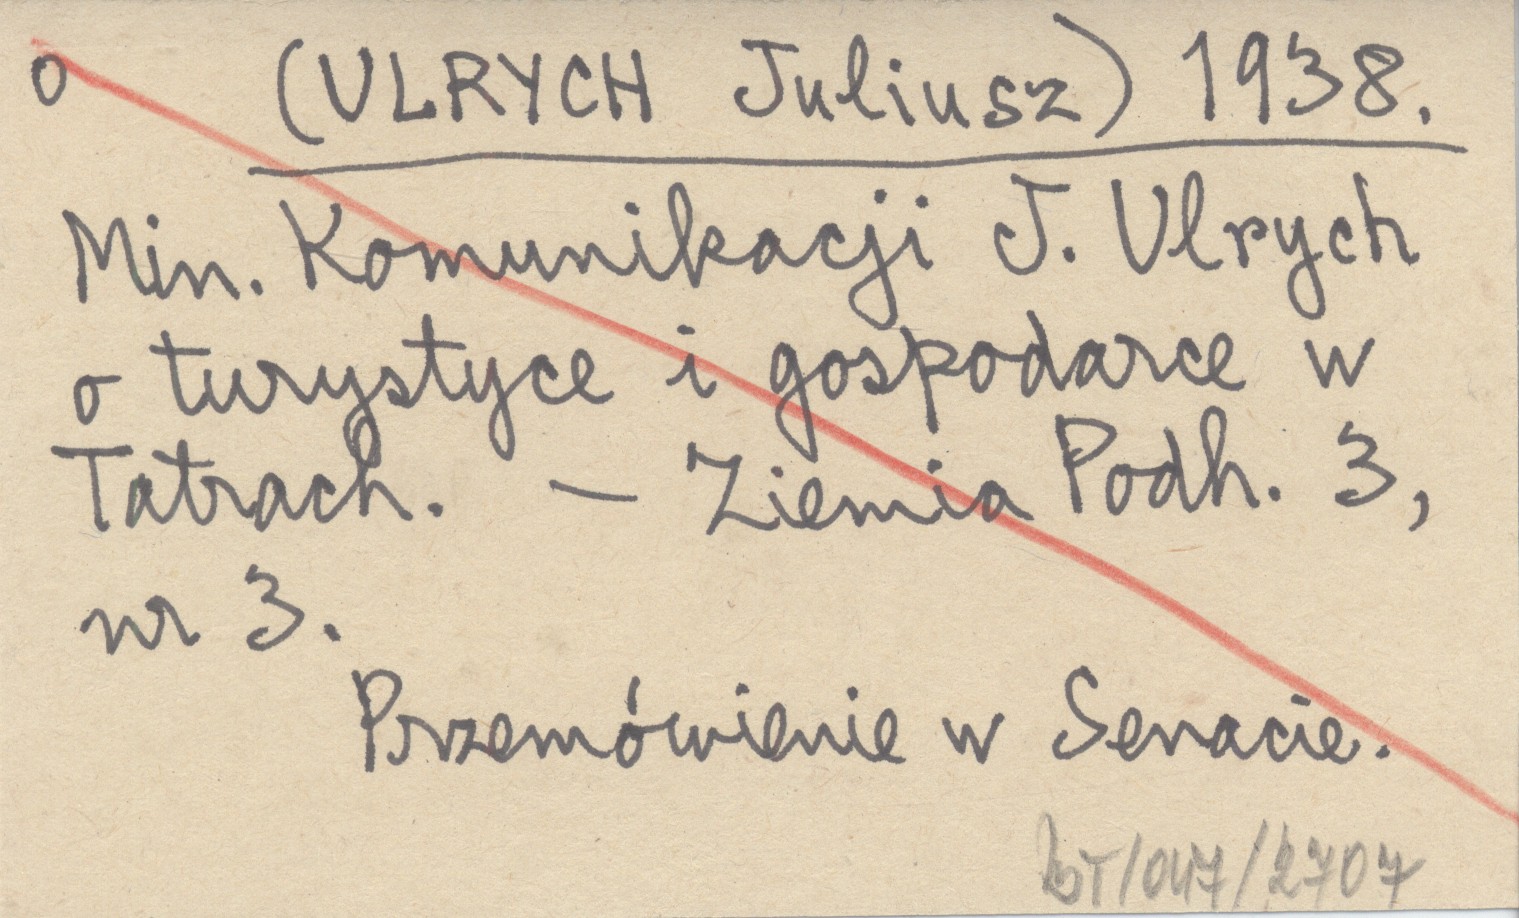 o (ULRYCH Juliusz) 1938.
Min. Komunikacji J. Ulrych
o turystyce i gospodarce w
Tatrach. — Ziemia Podh. 3,
nr 3.
Przemówienie w Senacie.
BT/047/2707